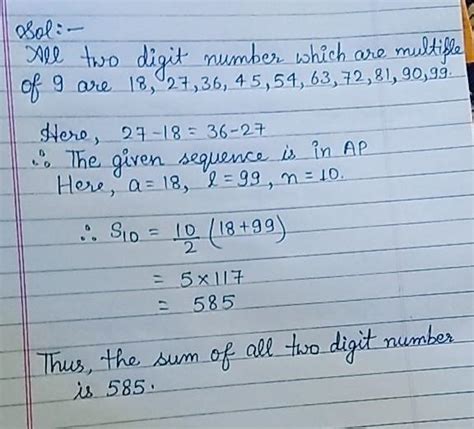 Sol:-
All two digit number which are multiple
of 9 are 18, 27, 36, 45, 54, 63, 72, 81, 90, 99.
Here, 27-18 = 36-27
∴ The given sequence is in AP
Here, a = 18, l = 99, n = 10.
∴ S10 = 10/2 (18+99)
= 5×117
= 585
Thus, the sum of all two digit number
is 585.